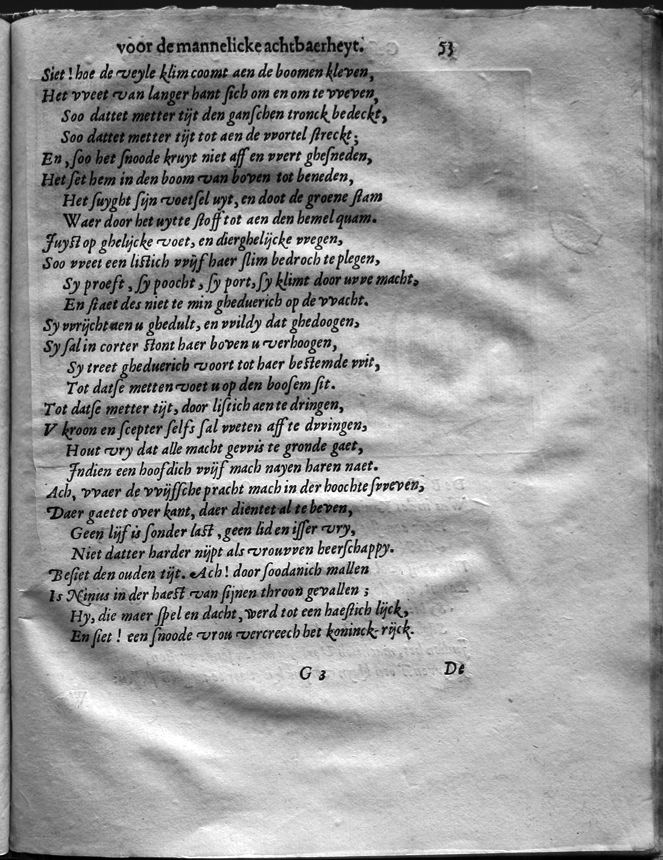 voor de mannelicke achtbaerheyt. 53
Siet! hoe de veyle klim coomt aen de boomen kleven,
Het vveet van langer hant sich om en om te vveven,
Soo dattet metter tijt den ganschen tronck bedeckt,
Soo dattet metter tijt tot aen de vvortel streckt;
En, soo het snoode kruyt niet aff en vvert ghesneden,
Het set hem in den boom van boven tot beneden,
Het suyght sijn voetsel uyt, en doot de groene stam
Waer door het uytte stoff tot aen den hemel quam.
Juyst op ghelijcke voet, en dierghelijcke vvegen,
Soo vveet een listich vvijf haer slim bedroch te plegen,
Sy proeft, sy poocht, sy port, sy klimt door uvve macht,
En staet des niet te min gheduerich op de vvacht.
Sy vvrijcht aen u ghedult, en vvildy dat ghedoogen,
Sy sal in corter stont haer boven u verhoogen,
Sy treet gheduerich voort tot haer bestemde vvit,
Tot datse metten voet u op den boosem sit.
Tot datse metter tijt, door listich aen te dringen,
V kroon en scepter selfs sal vveten aff te dvvingen,
Hout vry dat alle macht gevvis te gronde gaet,
Indien een hoofdich vvijf mach nayen haren naet.
Ach, vvaer de vvijfsche pracht mach in der hoochte svveven,
Daer gaetet over kant, daer dientet al te beven,
Geen lijf is sonder last, geen lid en isser vry,
Niet datter harder nijpt als vrouvven heerschappy.
Besiet den ouden tijt. Ach! door soodanich mallen
Is Ninus in der haest van sijnen throon gevallen;
Hy, die maer spel en dacht, werd tot een haestich lijck,
En siet! een snoode vrou vercreech het koninck-rijck.
G 3 De